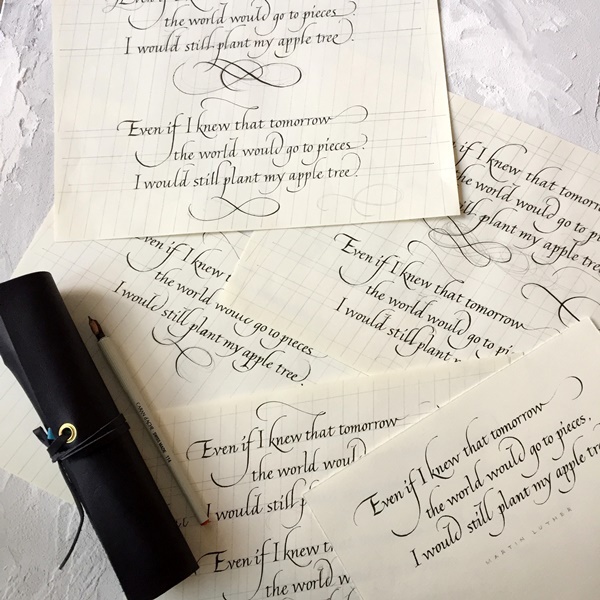 Even if I knew that tomorrow
the world would go to pieces
I would still plant my apple tree.
Even if I knew that tomorrow
the world would go to pieces,
I would still plant my apple tree.
if I knew that tomorrow
the world would go to pi
still plant my apple tree
Even if I knew t
the world would go to pieces
I would still plant my apple tree.
Even if I knew that tomorrow
the world would go to pi
I would still plant my apple
Even if I knew that tomorrow
the world woul
I would still p
Even if I knew t
the world w
Even if I knew that tomorrow
the world would go to pieces,
I would still plant my apple tre
MARTIN LUTHER